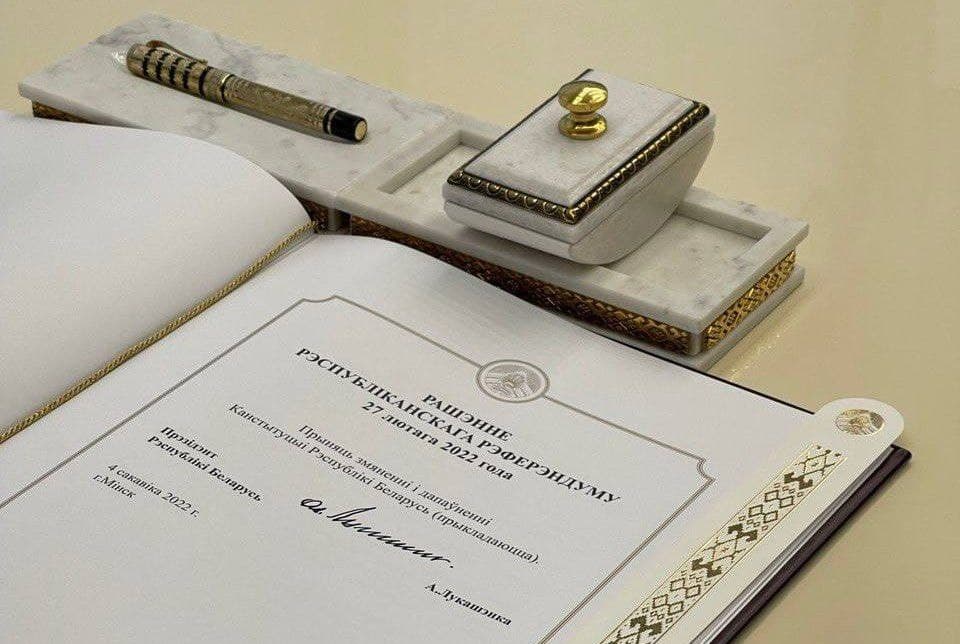 РАШЭННЕ
РЭСПУБЛІКАНСКАГА РЭФЕРЭНДУМУ
27 лютага 2022 года
Прыняць змяненні і дапаўненні
Канстытуцыі Рэспублікі Беларусь (прыкладаюцца).
Прэзідэнт
Рэспублікі Беларусь
А.Лукашэнка
4 сакавіка 2022 г.
г.Мінск